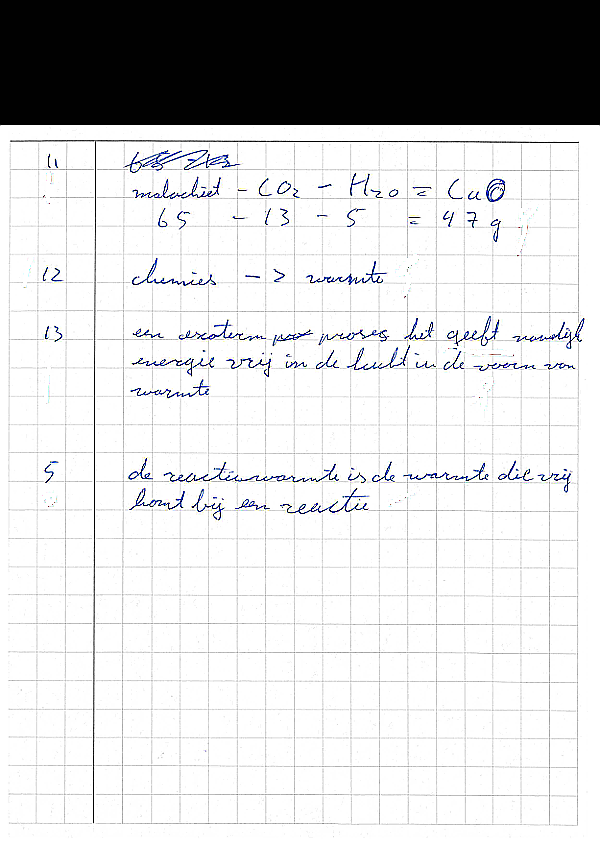 11
malachiet - CO2 - H2O = CuO
65 - 13 - 5 = 47 g
12 chemies -> warmte
13 een exoterm proses het geeft
energie vrij in de lucht in de voorm van
warmte
5 de reactiewarmte is de warmte die vrij
komt bij een reactie